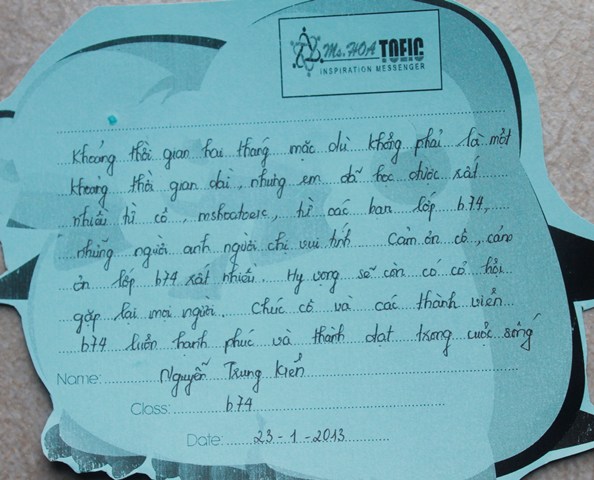 Ms. HOA TOEIC
INSPIRATION MESSENGER
Khoảng thời gian hai tháng mặc dù khẳng phải là một
khoảng thời gian dài, nhưng em đã học được rất
nhiều từ cô, mshoatoeic, từ các bạn lớp b74,
những người anh người chị vui tính. Cảm ơn cô, cảm
ơn lớp b74 rất nhiều. Hy vọng sẽ còn có cơ hội
gặp lại mọi người. Chúc cô và các thành viên
b74 luôn hạnh phúc và thành đạt trong cuộc sống
Name: Nguyễn Trung Kiên
Class: b74
Date: 23-1-2013